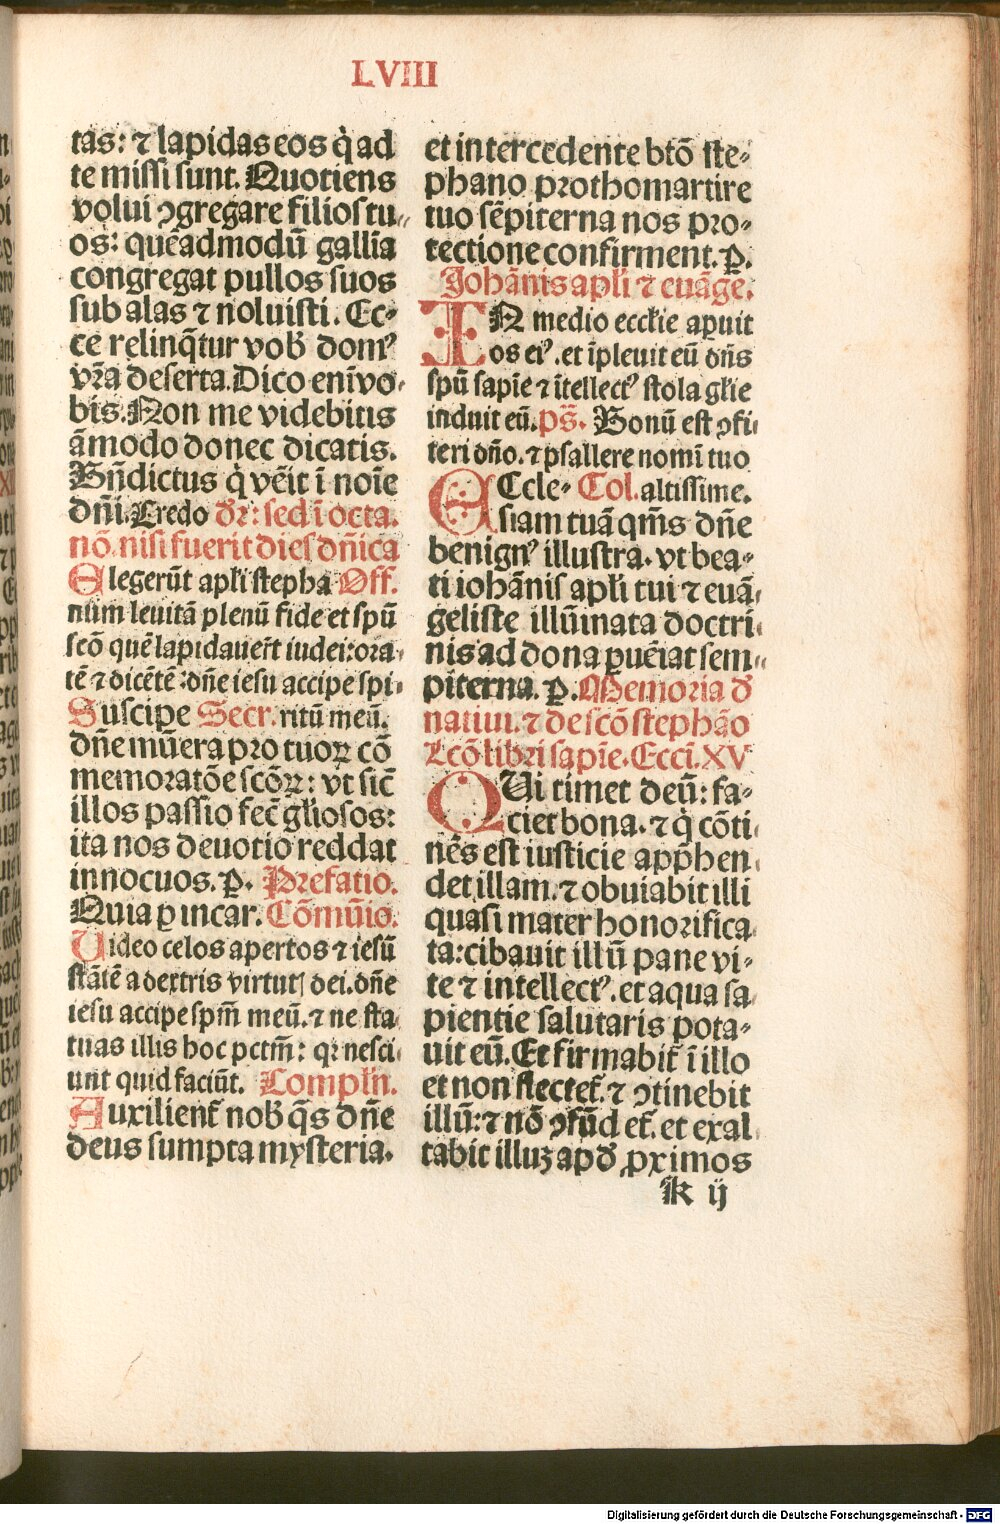 LVIII
tas: ⁊ lapidas eos q̇ ad
te missi sunt. Quotiens
volui ꝯgregare filios tu⸗
os: quēadmodū gallīa
congregat pullos suos
sub alas ⁊ noluisti. Ec⸗
ce relinq̄tur vob̄ domꝰ
vr̄a deserta. Dico eni̅ vo⸗
bis. Non me videbitis
āmodo donec dicatis.
Bn̄dictus q̇ vēit ī noīe
dn̄i. Credo dr̄: sed ī octa.
nō. nisi fuerit dies dn̄ica
Elegerūt apl̄i stepha Off.
num leuitā plenū fide et spū
scō quē lapidauer̄t iudei: ora⸗
tē ⁊ dicētē: dn̄e iesu accipe spi⸗
Suscipe Secr. ritū meū.
dn̄e mūera pro tuoꝝ cō
memoratōe scōꝝ: vt sic̄
illos passio fec̄ gl̄iosos:
ita nos deuotio reddat
innocuos. ꝑ. Prefatio.
Quia ꝑ incar. Cōmūio.
Uideo celos apertos ⁊ iesū
stātē a dextris virtutꝭ dei. dn̄e
iesu accipe spm̄ meū. ⁊ ne sta
tuas illis hoc pctm̄: qꝛ nesci⸗
unt quid faciūt. Compl̄n.
Auxilient̄ nob̄ q̄s dn̄e
deus sumpta mysteria.
et intercedente btō ste⸗
phano prothomartire
tuo sēpiterna nos pro⸗
tectione confirment. ꝑ.
Johānis apl̄i ⁊ euāge.
IN medio eccl̄ie aꝑuit
os eiꝰ. et īpleuit eū dn̄s
spū sapīe ⁊ ītellectꝰ stola gl̄ie
induit eū. ps̄. Bonū est ꝯfi⸗
teri dn̄o. ⁊ psallere nomī tuo
ECcle⸗ Col. altissime.
siam tuā qm̄s dn̄e
benignꝰ illustra. vt bea⸗
ti iohānis apl̄i tui ⁊ euā⸗
geliste illūinata doctri⸗
nis ad dona ꝑuēiat sem⸗
piterna. ꝑ. Memoria d̄
natiui. ⁊ de scō stephāo
Lcō libri sapīe. Ecci̅. XV
QUi timet deū: fa⸗
ciet bona. ⁊ q̇ cōti⸗
nēs est iusticie app̄hen⸗
det illam. ⁊ obuiabit illi
quasi mater honorifica⸗
ta: cibauit illū pane vi⸗
te ⁊ intellectꝰ. et aqua sa⸗
pientie salutaris pota⸗
uit eū. Et firmabit̄ ī illo
et non flectet̄. ⁊ ꝯtinebit
illū: ⁊ nō ꝯfūdet̄. et exal⸗
tabit illuꝫ apd̄ ꝓximos
k ij
Digitalisierung gefördert durch die Deutsche Forschungsgemeinschaft - DFG